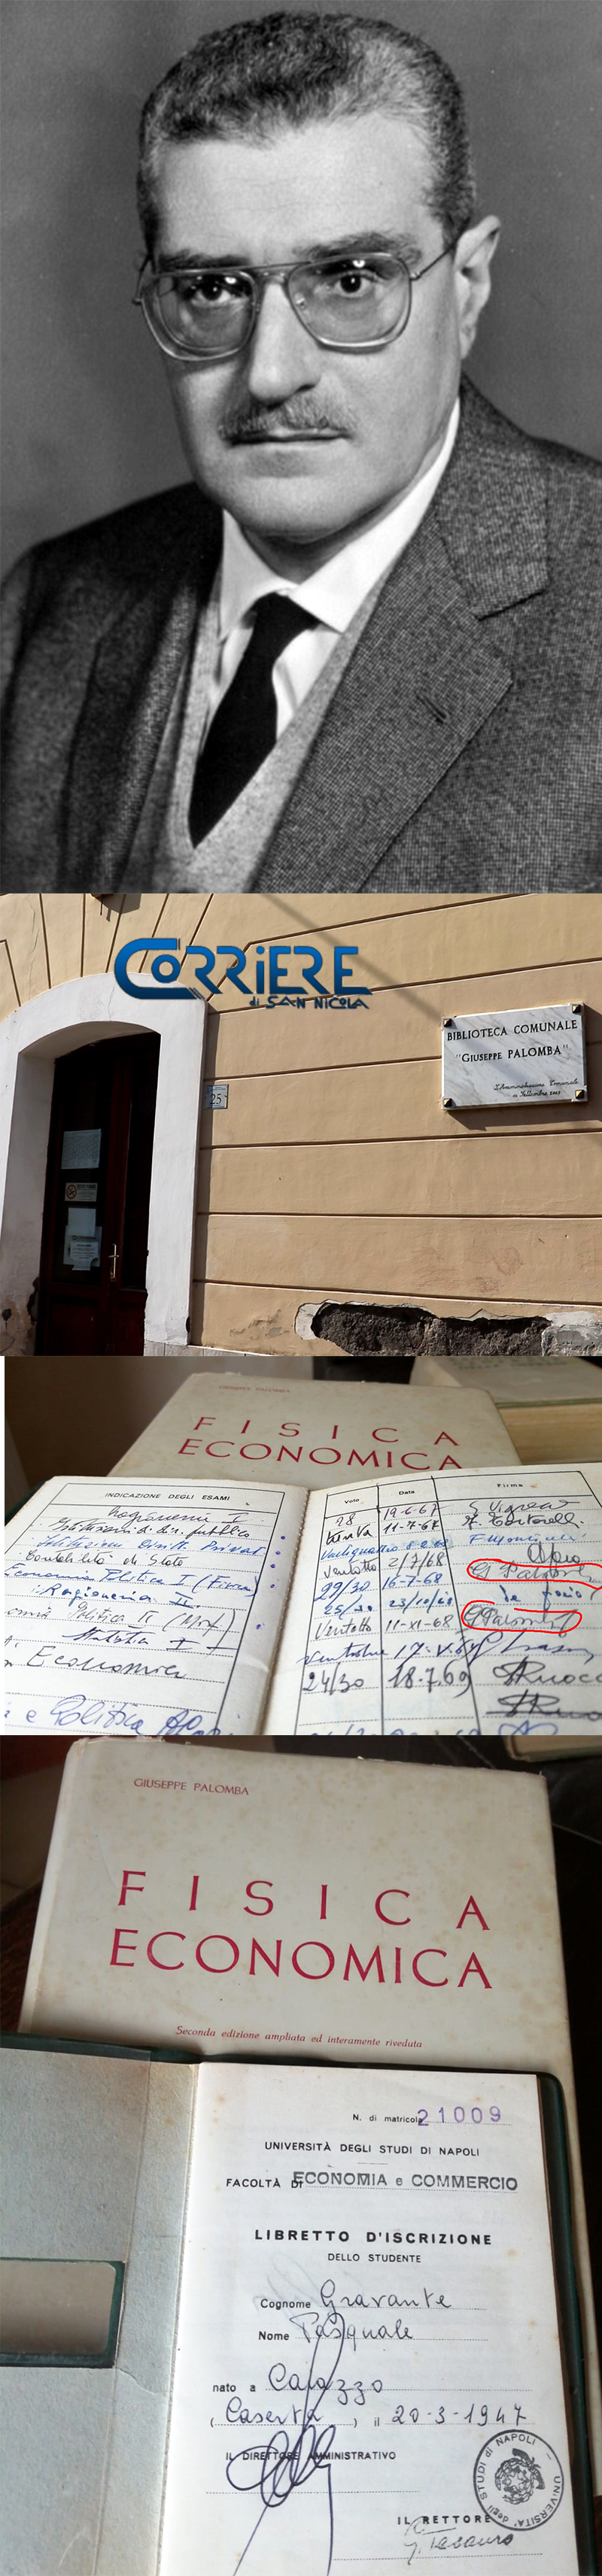 CORRIERE
di SAN NICOLA
BIBLIOTECA COMUNALE
"GIUSEPPE PALOMBA"
L'Amministrazione Comunale
25
GIUSEPPE PALOMBA
FISICA
ECONOMICA
INDICAZIONE DEGLI ESAMI
Ragioneria I
Istituzioni di dir. pubblico
Istituzioni Diritt. Privat
Contabilità di Stato
Economia Politica I (Fisca)
Ragioneria II
Politica II
Statistica I
Economia
e Politica
Voto
Data
Firma
28 19-6-67
trenta 11-7-67
Ventiquattro
Ventotto 2/7/68
29/30 16-7-68
25/30 23/10/68
Ventotto 11-XI-68
24/30 18.7.69
G Palomba
G Palomba
GIUSEPPE PALOMBA
FISICA
ECONOMICA
Seconda edizione ampliata ed interamente riveduta
N. di matricola 21009
UNIVERSITÀ DEGLI STUDI DI NAPOLI
FACOLTÀ DI ECONOMIA e COMMERCIO
LIBRETTO D'ISCRIZIONE
DELLO STUDENTE
Cognome Gravante
Nome Pasquale
nato a Caiazzo
( Caserta ) il 20-3-1947
IL DIRETTORE AMMINISTRATIVO
UNIVERSITA' degli STUDI di NAPOLI
IL RETTORE
G. Tesauro